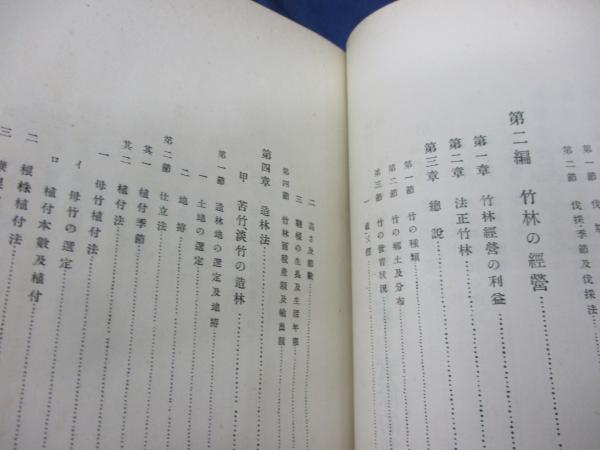 第二節 伐採季節及伐採法
第二編 竹林の經營
第一章 竹林經營の利益
第二章 法正竹林
第三章 總説
第一節 竹の種類
第二節 竹の郷土及分布
第三節 竹の發育狀況
二 高さ及節數
三 鞭根の生長及生活年限
第四節 竹林面積產額及輸出額
第四章 造林法
甲 苦竹、淡竹の造林
第一節 造林地の選定及地拵
一 土地の選定
二 地拵
第二節 仕立法
其一 植付季節
其二 植付法
一 母竹植付法
イ 母竹の選定
ロ 植付本數及植付
二 根株植付法
三